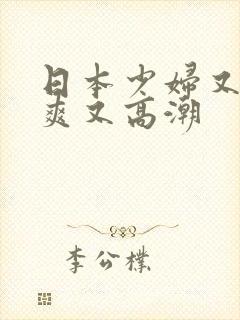 日本少婦又
爽又高潮
李公樸